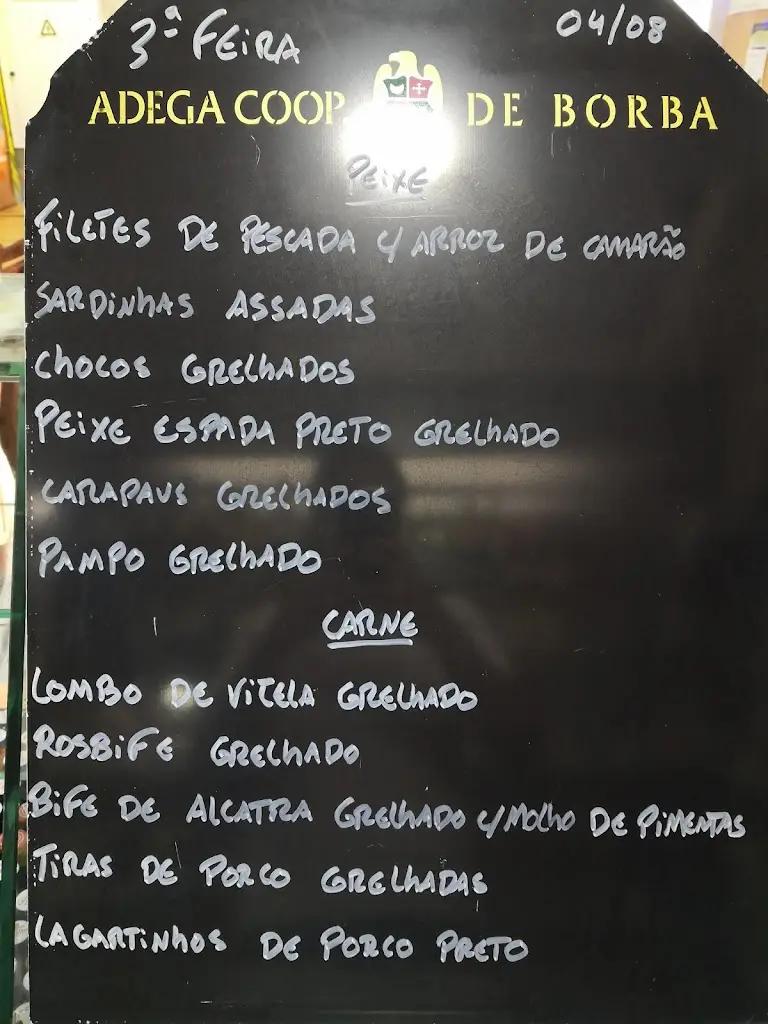 3ª FEIRA 04/08
ADEGA COOP. DE BORBA
PEIXE
FILETES DE PESCADA C/ ARROZ DE CAMARÃO
SARDINHAS ASSADAS
CHOCOS GRELHADOS
PEIXE ESPADA PRETO GRELHADO
CARAPAUS GRELHADOS
PAMPO GRELHADO
CARNE
LOMBO DE VITELA GRELHADO
ROSBIFE GRELHADO
BIFE DE ALCATRA GRELHADO C/MOLHO DE PIMENTAS
TIRAS DE PORCO GRELHADAS
LAGARTINHOS DE PORCO PRETO